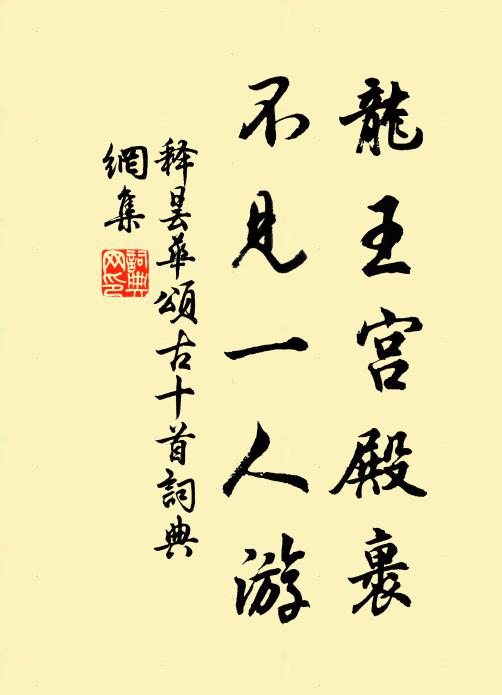 龍王宮殿裹
不見一人游
释昙華頌古十首詞典
網集
詞典
网印